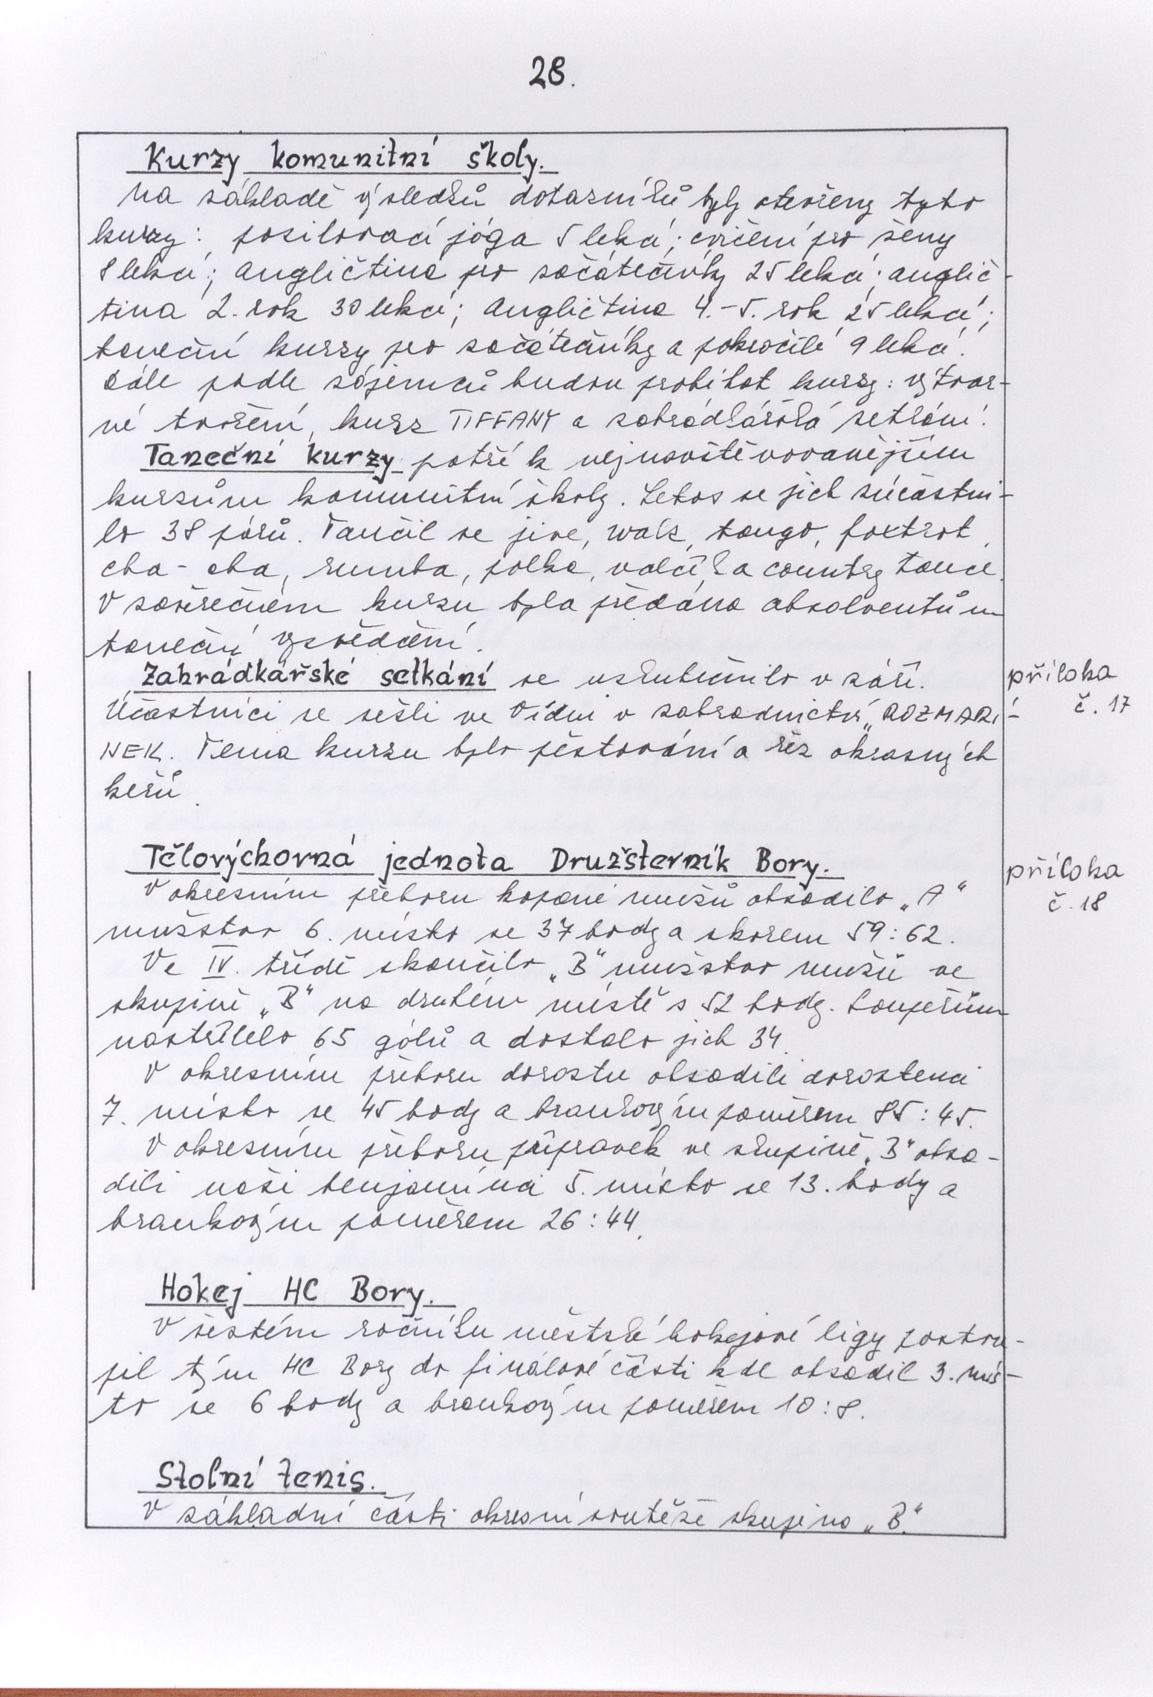 28.
Kurzy komunitní školy.
Na základě výsledků dotazníků byly otevřeny tyto
kurzy: posilovací jóga 5 lekcí; cvičení pro ženy
8 lekcí; angličtina pro začátečníky 25 lekcí; anglič-
tina 2. rok 30 lekcí; angličtina 4.-5. rok 25 lekcí;
taneční kurzy pro začátečníky a pokročilé 9 lekcí.
Dále podle zájemců budou probíhat kurzy: výtvar-
né tvoření, kurz TIFFANY a zahrádkářská setkání.
Taneční kurzy patří k nejnavštěvovanějším
kurzům komunitní školy. Letos se jich zúčastni-
lo 38 párů. Tančil se jive, walz, tango, foxtrot,
cha-cha, rumba, polka, valčík a country tance.
V závěrečném kurzu byla předána absolventům
taneční vysvědčení.
Zahrádkářské setkání se uskutečnilo v září.
příloha
č. 17
Účastníci se sešli ve Vídni v zahradnictví „ROZMARÍ-
NEK. Téma kurzu bylo pěstování a řez okrasných
keřů.
Tělovýchovná jednota Družsternik Bory.
příloha
č. 18
V okresním přeboru kopané mužů obsadilo „A"
mužstvo 6. místo se 37 body a skorem 59:62.
Ve IV. třídě skončilo „B" mužstvo mužů ve
skupině „B" na druhém místě s 52 body. Soupeřům
nastřílelo 65 gólů a dostalo jich 34.
V okresním přeboru dorostu obsadili dorostenci
7. místo se 45 body a brankovým poměrem 85:45.
V okresním přeboru přípravek ve skupině „B" obsa-
dili naši benjamínci 5. místo se 13. body a
brankovým poměrem 26:44.
Hokej HC Bory.
V šestém ročníku městské hokejové ligy postou-
pil tým HC Bory do finálové části kde obsadil 3. mís-
to se 6 body a brankovým poměrem 10:8.
Stolní tenis.
V základní části okresní soutěže skupina „B."